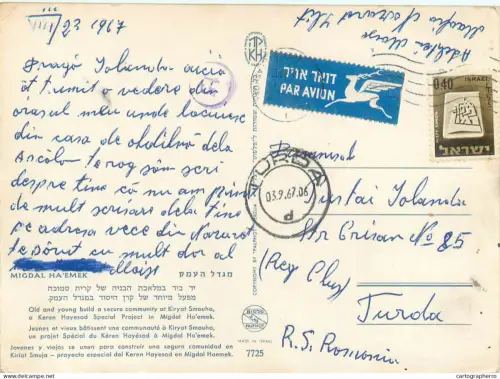 VIII/23 1967
Dragă Iolanda aicia
ăt trimit o vedere din
orasul meu unde locuiesc
din casa de odihnă dela
Ascalon te rog săm scri
despre tine că nu am primit
de mult scrisori dela tine
pe adresa vece din Nazaret
te sărut cu mult dor al
MIGDAL HA'EMEK
מגדל העמק
יר ביד במלאכת הבניה של קרית סמוכה
מפעל מיוחד של קרן היסוד במגדל העמק.
Old and young build a secure community at Kiryat Smouha,
a Keren Hayesod Special Project in Migdal Ha'emek.
Jeunes et vieux bâtissent une communauté à Kiryat Smouha,
un projet Spécial du Kéren Hayésod à Migdal Ha'emek.
Jovenes y viejos se unen para construir una segura comunidad en
Kiriat Smuja – proyecto especial del Keren Hayesod en Migdal Haemek.
PALPHOT
MADE IN ISRAEL
7725
דואר אויר
PAR AVION
ISRAEL
0.40
ישראל
TURDA
03.9.67.06
d
Iolanda
Str Crisan No 85
(Reg Cluj)
Turda
R.S. Romania
cartographero